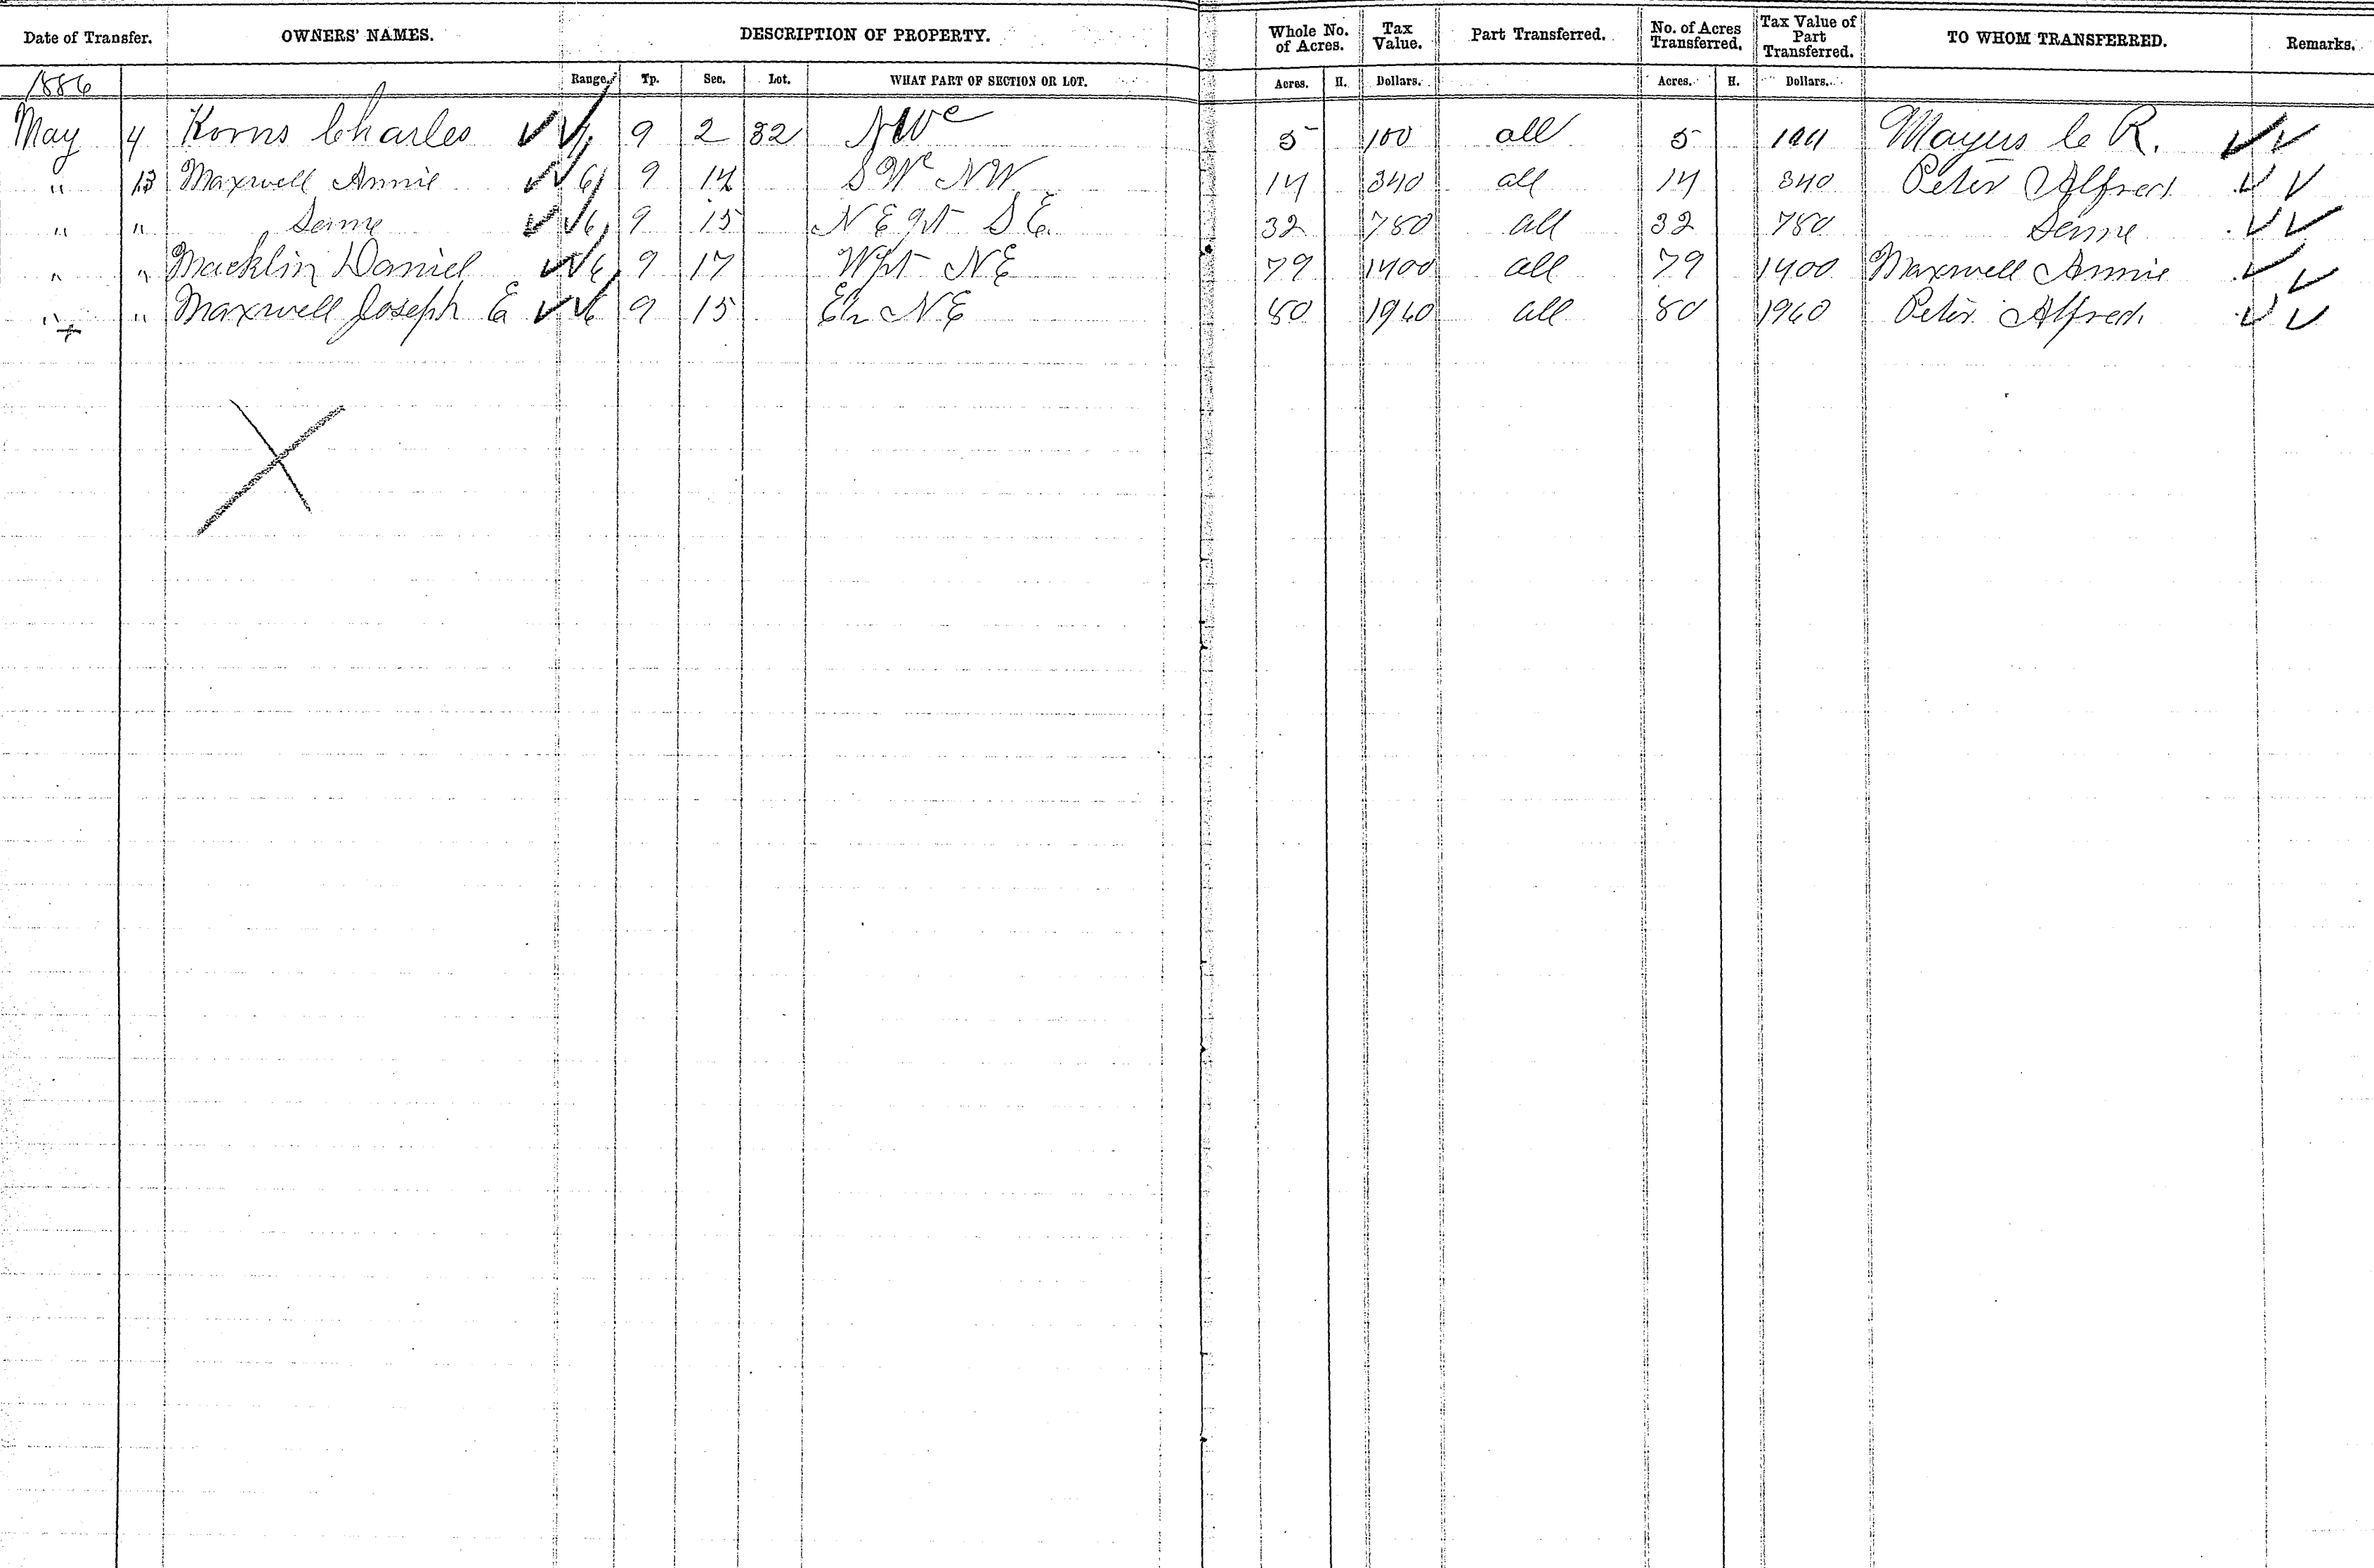 Date of Transfer. OWNERS' NAMES. DESCRIPTION OF PROPERTY. Whole No. of Acres. Tax Value. Part Transferred. No. of Acres Transferred. Tax Value of Part Transferred. TO WHOM TRANSFERRED. Remarks.
1886 Range. Tp. Sec. Lot. WHAT PART OF SECTION OR LOT. Acres. H. Dollars. Acres. H. Dollars.
May 4 Korns Charles ✓ ✓ 6 9 2 32 NWc 5 100 all 5 100 C R. ✓ ✓
" 13 Maxwell Annie ✓ ✓ 6 9 14 SWc NW 14 340 all 14 340 Peter Alfred ✓ ✓
" " Same ✓ ✓ 6 9 15 NE pt SE 32 780 all 32 780 Same ✓ ✓
" " Macklin Daniel ✓ ✓ 6 9 17 W pt NE 79 1400 all 79 1400 Maxwell Annie ✓ ✓
" " Maxwell Joseph E ✓ ✓ 6 9 15 Eh NE 80 1960 all 80 1960 Peter Alfred ✓ ✓